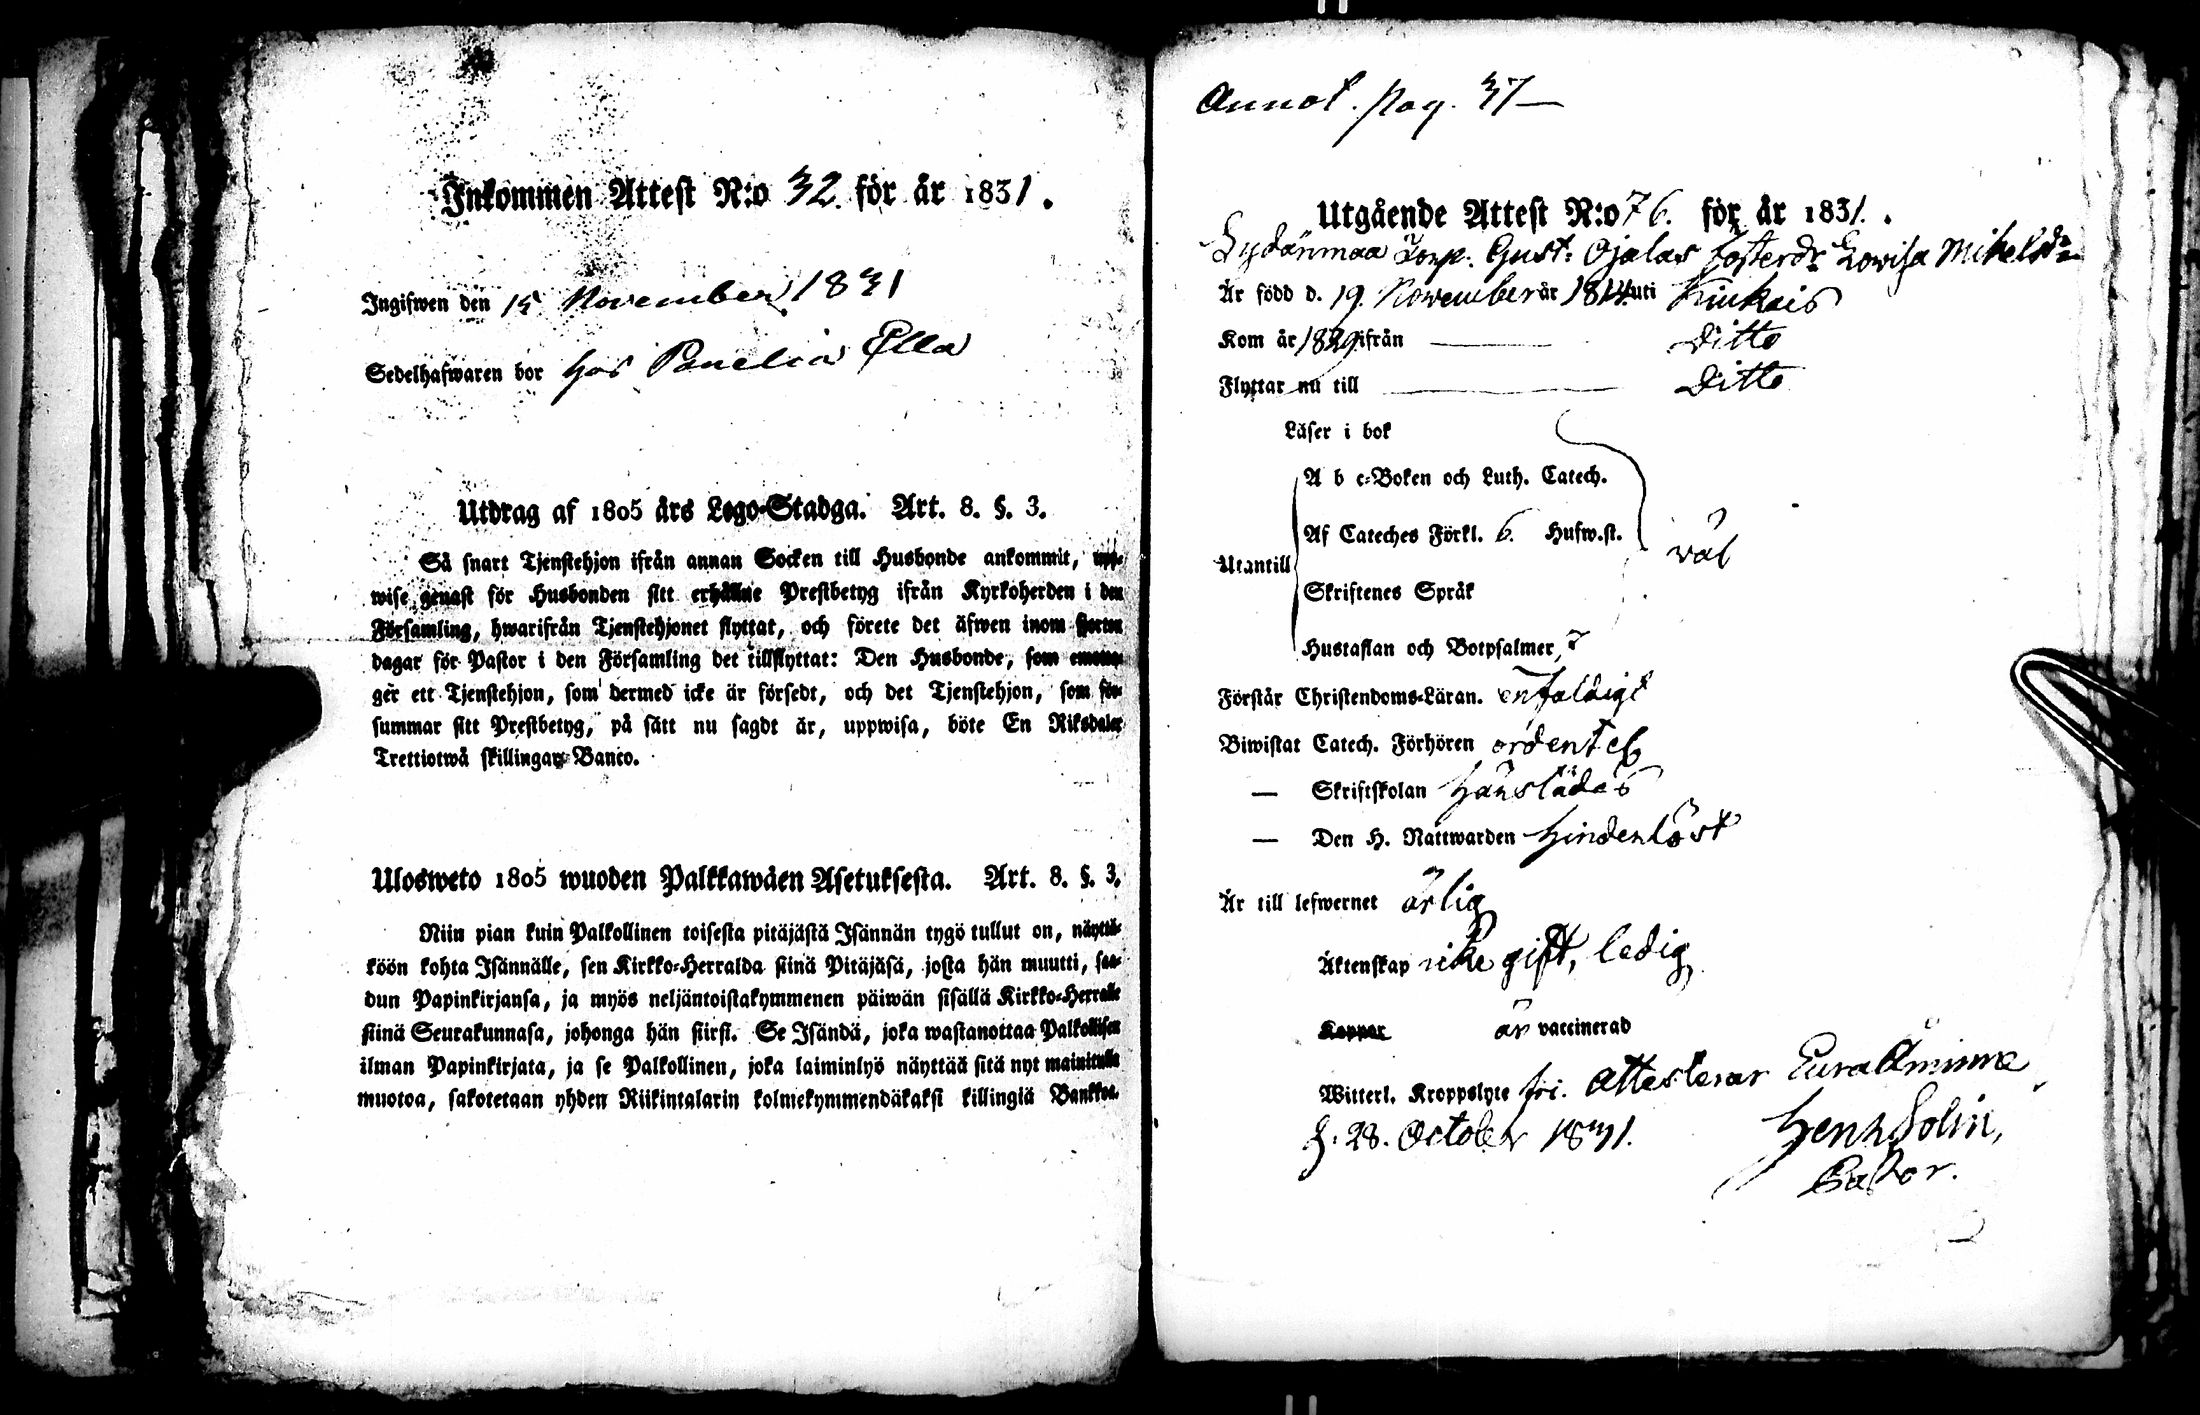 Inkommen Attest N:o 32. för år 1831.
Ingifwen den 15 November 1831
Sedelhafwaren bor hos Panelia Ella
Utdrag af 1805 års Lego-Stadga. Art. 8. §. 3.
Så snart Tjenstehjon ifrån annan Socken till Husbonde ankommit, upp-
wise genast för Husbonden sitt erhållne Prestbetyg ifrån Kyrkoherden i den
Församling, hwarifrån Tjenstehjonet flyttat, och förete det äfwen inom fjorton
dagar för Pastor i den Församling det tillflyttat: Den Husbonde, som emotta-
ger ett Tjenstehjon, som dermed icke är försedt, och det Tjenstehjon, som för-
summar sitt Prestbetyg, på sätt nu sagdt är, uppwisa, böte En Riksdaler
Trettiotwå skillingar Banco.
Ulosweto 1805 wuoden Palkkawäen Asetuksesta. Art. 8. §. 3.
Niin pian kuin Palkollinen toisesta pitäjästä Isännän tygö tullut on, näyttä-
köön kohta Isännälle, sen Kirkko-Herralda siinä Pitäjäsä, josta hän muutti, saa-
dun Papinkirjansa, ja myös neljäntoistakymmenen päiwän sisällä Kirkko-Herralle
siinä Seurakunnasa, johonga hän siirsi. Se Isändä, joka wastanottaa Palkollisen
ilman Papinkirjata, ja se Palkollinen, joka laiminlyö näyttää sitä nyt mainitulla
muotoa, sakotetaan yhden Riikintalarin kolmekymmendäkaksi killingiä Bankkoa.
Annot. pag. 37
Utgående Attest N:o 76. för år 1831.
Sydänmaa Torp. Gust. Ojalas fosterdr Lowisa Mikelsdr
Är född d. 19 November år 1814 uti Kiukais
Kom år 1829 ifrån Ditto
Flyttar nu till Ditto
Läser i bok
A b c-Boken och Luth. Catech.
Af Cateches Förkl. 6. Hufw.st.
Utantill
wäl
Skriftenes Språk
Hustaflan och Botpsalmer 7
Förstår Christendoms-Läran. enfaldigt
Biwistat Catech. Förhören ordentel
— Skriftskolan
— Den H. Nattwarden hinderlöst
Är till lefwernet ärlig
Äktenskap icke gift, ledig
Koppor är vaccinerad
Witterl. Kroppslyte fri. attesterar Eura Åminne
d. 28. October 1831.
Henr Solin,
Pastor.